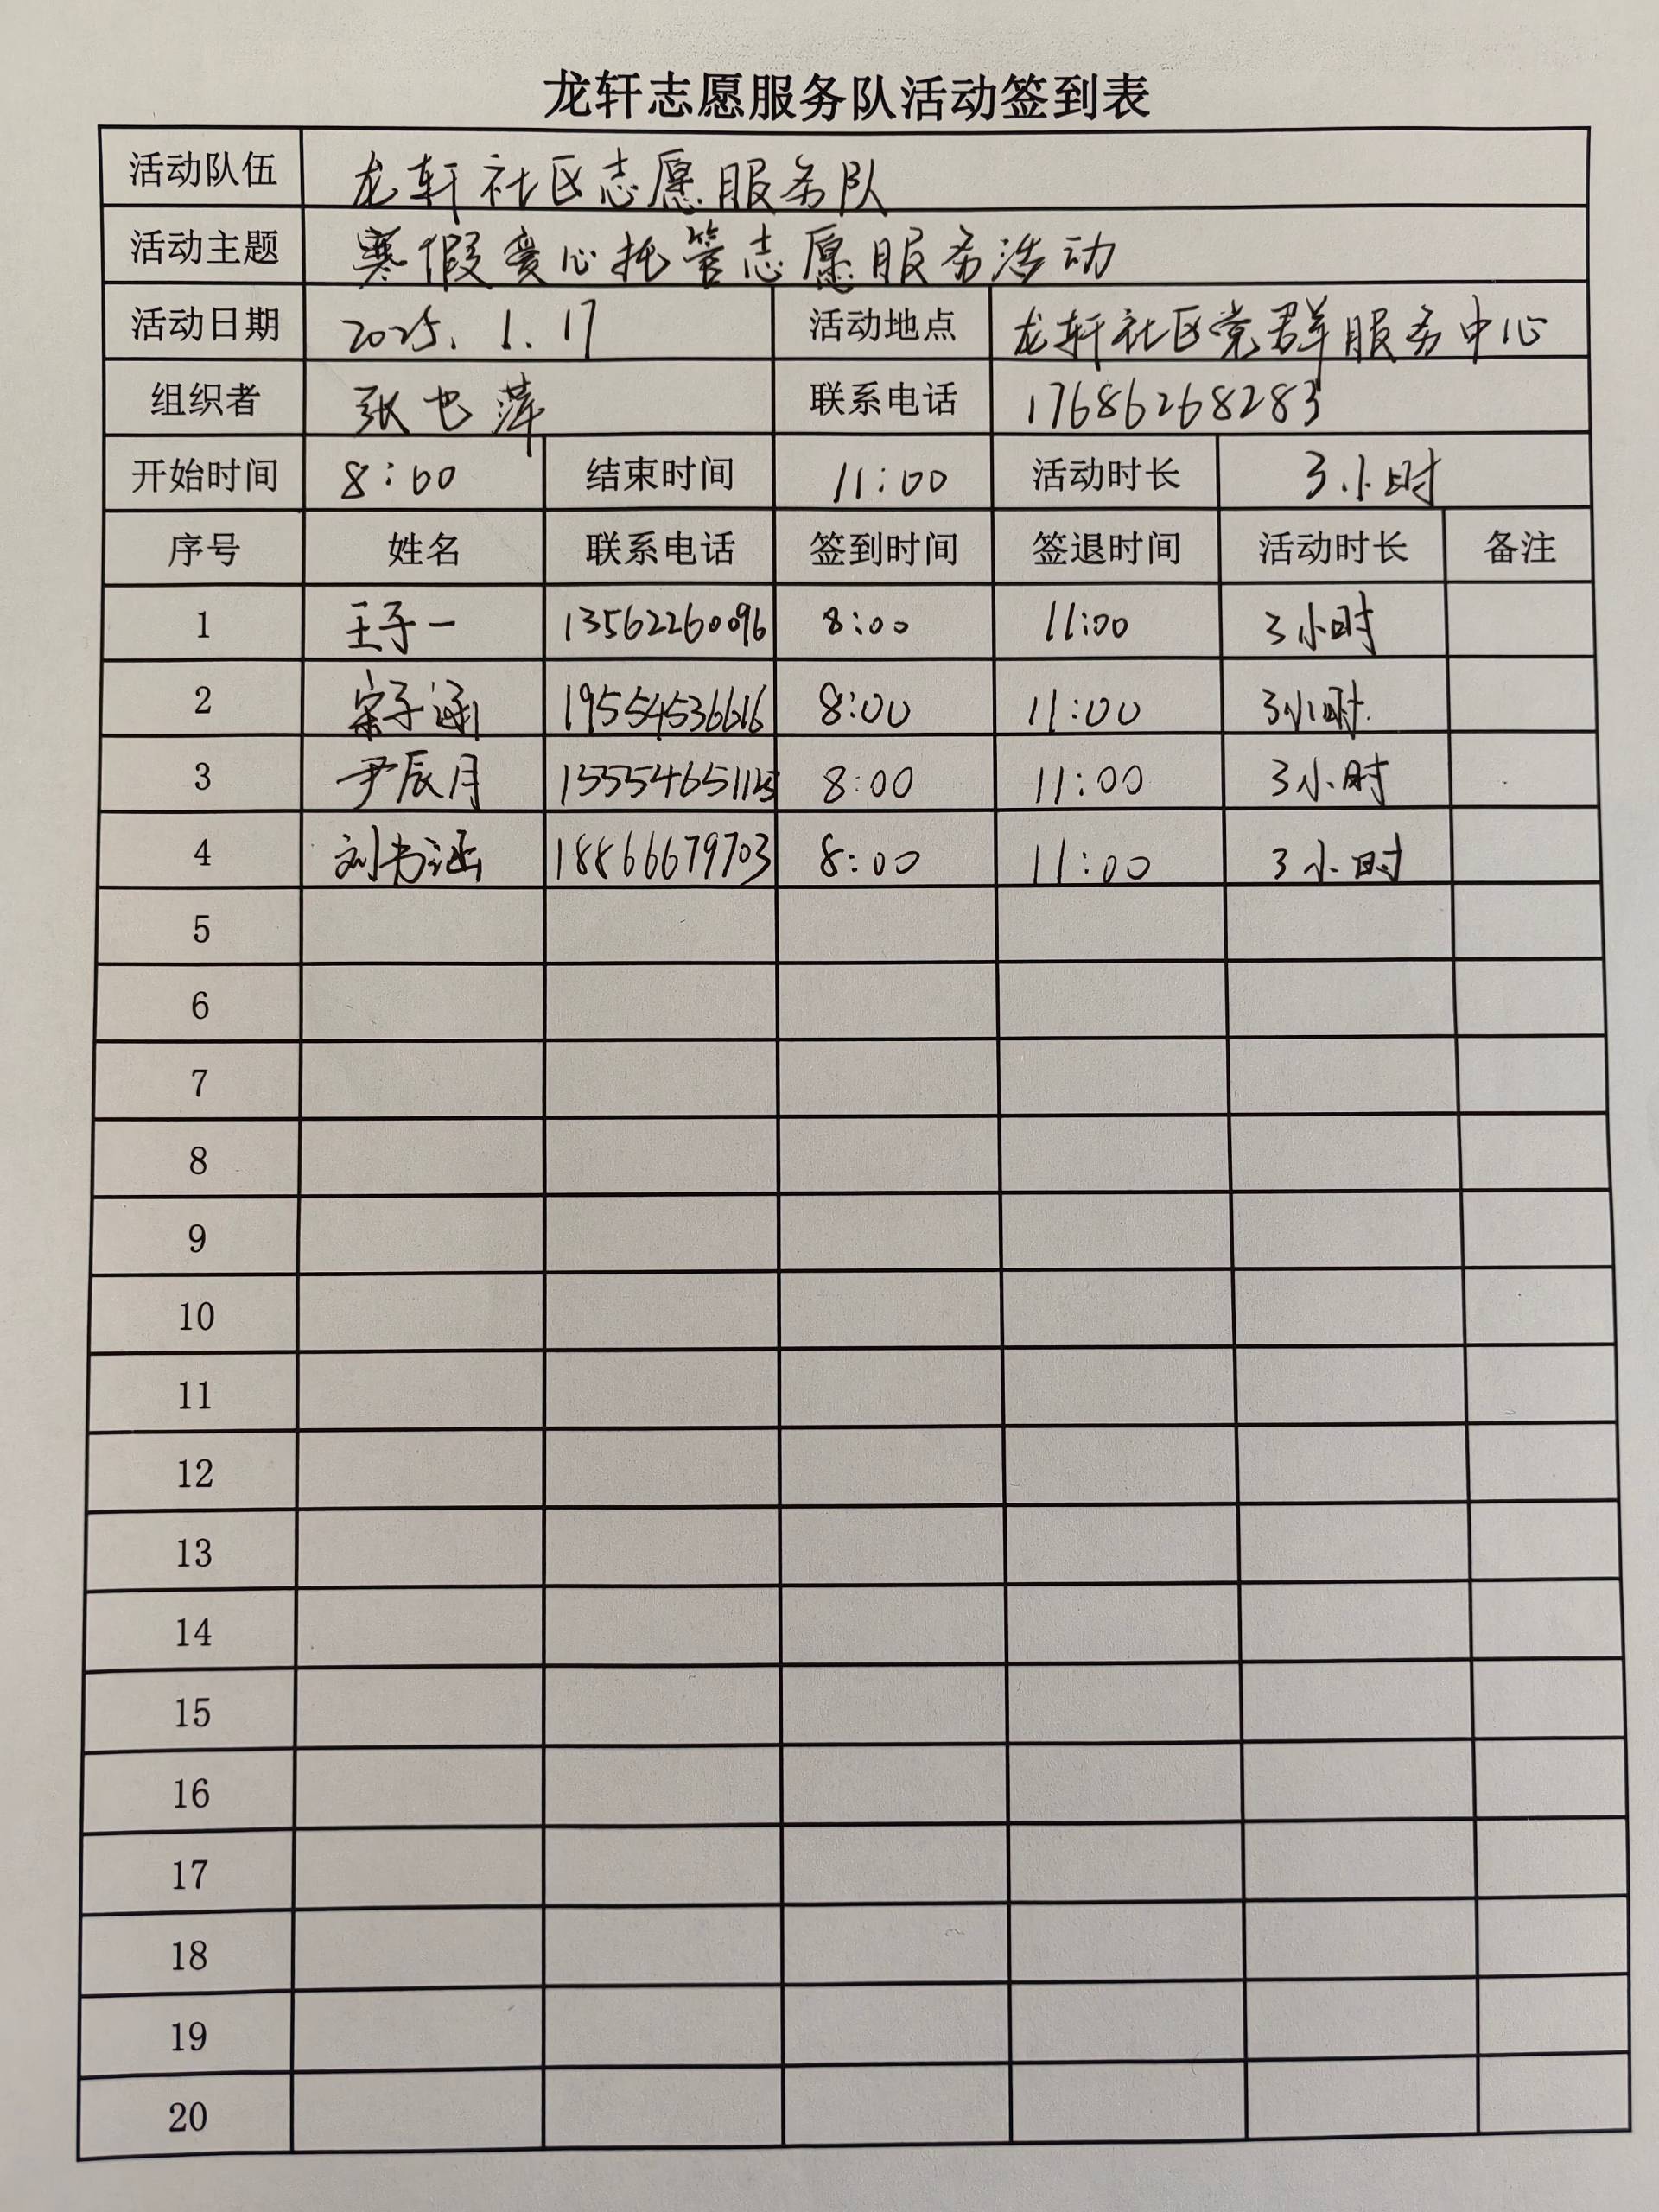 龙轩志愿服务队活动签到表
活动队伍 龙轩社区志愿服务队
活动主题 寒假爱心托管志愿服务活动
活动日期 2025.1.17 活动地点 龙轩社区党群服务中心
组织者 张也萍 联系电话 17686268283
开始时间 8:00 结束时间 11:00 活动时长 3小时
序号 姓名 联系电话 签到时间 签退时间 活动时长 备注
1 王子一 13562260096 8:00 11:00 3小时
2 宋子涵 19554536616 8:00 11:00 3小时
3 尹辰月 8:00 11:00 3小时
4 刘书涵 18866679703 8:00 11:00 3小时
5
6
7
8
9
10
11
12
13
14
15
16
17
18
19
20